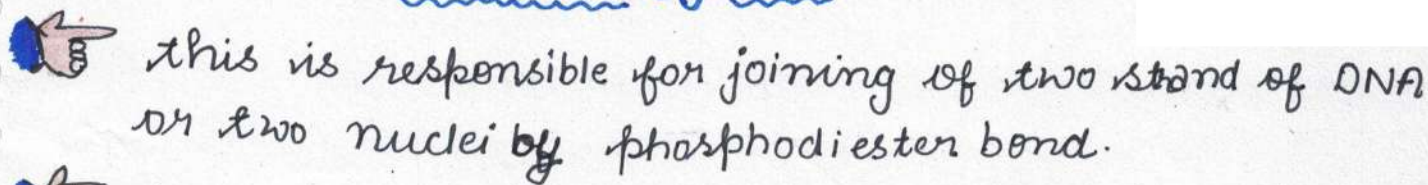 this is responsible for joining of two strand of DNA
or two nuclei by phosphodiester bond.